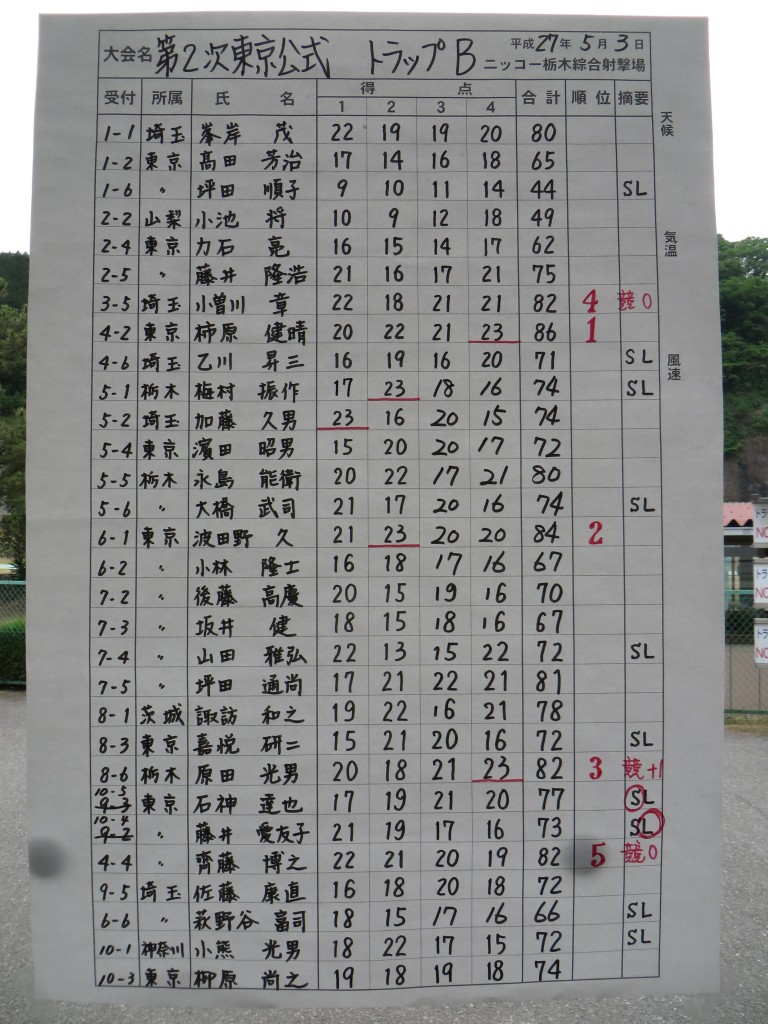 大会名 第2次東京公式 トラップB 平成27年5月3日
ニッコー栃木綜合射撃場
受付 所属 氏名 得点 合計 順位 摘要
1 2 3 4
天候
1-1 埼玉 峯岸 茂 22 19 19 20 80
1-2 東京 髙田 芳治 17 14 16 18 65
1-6 〃 坪田 順子 9 10 11 14 44 SL
2-2 山梨 小池 将 10 9 12 18 49
2-4 東京 力石 亮 16 15 14 17 62
気温
2-5 〃 藤井 隆浩 21 16 17 21 75
3-5 埼玉 小曽川 章 22 18 21 21 82 4 競0
4-2 東京 柿原 健晴 20 22 21 23 86 1
4-6 埼玉 乙川 昇三 16 19 16 20 71 SL
風速
5-1 栃木 梅村 振作 17 23 18 16 74 SL
5-2 埼玉 加藤 久男 23 16 20 15 74
5-4 東京 濱田 昭男 15 20 20 17 72
5-5 栃木 永島 能衛 20 22 17 21 80
5-6 〃 大橋 武司 21 17 20 16 74 SL
6-1 東京 波田野 久 21 23 20 20 84 2
6-2 〃 小林 隆士 16 18 17 16 67
7-2 〃 後藤 高慶 20 15 19 16 70
7-3 〃 坂井 健 18 15 18 16 67
7-4 〃 山田 雅弘 22 13 15 22 72 SL
7-5 〃 坪田 通尚 17 21 22 21 81
8-1 茨城 諏訪 和之 19 22 16 21 78
8-3 東京 嘉悦 研二 15 21 20 16 72 SL
8-6 栃木 原田 光男 20 18 21 23 82 3 競+1
10-5
9-3 東京 石神 達也 17 19 21 20 77 SL
10-4
9-2 〃 藤井 愛友子 21 19 17 16 73 SL
4-4 〃 齊藤 博之 22 21 20 19 82 5 競0
9-5 埼玉 佐藤 康直 16 18 20 18 72
6-6 〃 萩野谷 富司 18 15 17 16 66 SL
10-1 神奈川 小熊 光男 18 22 17 15 72 SL
10-3 東京 柳原 尚之 19 18 19 18 74
トラ
NO
トラ
NO
トラ
NO